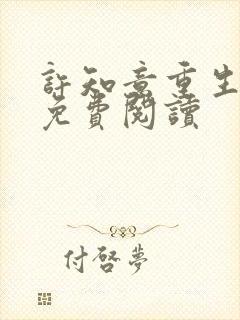 許知意重生
免費閱讀
付啓夢